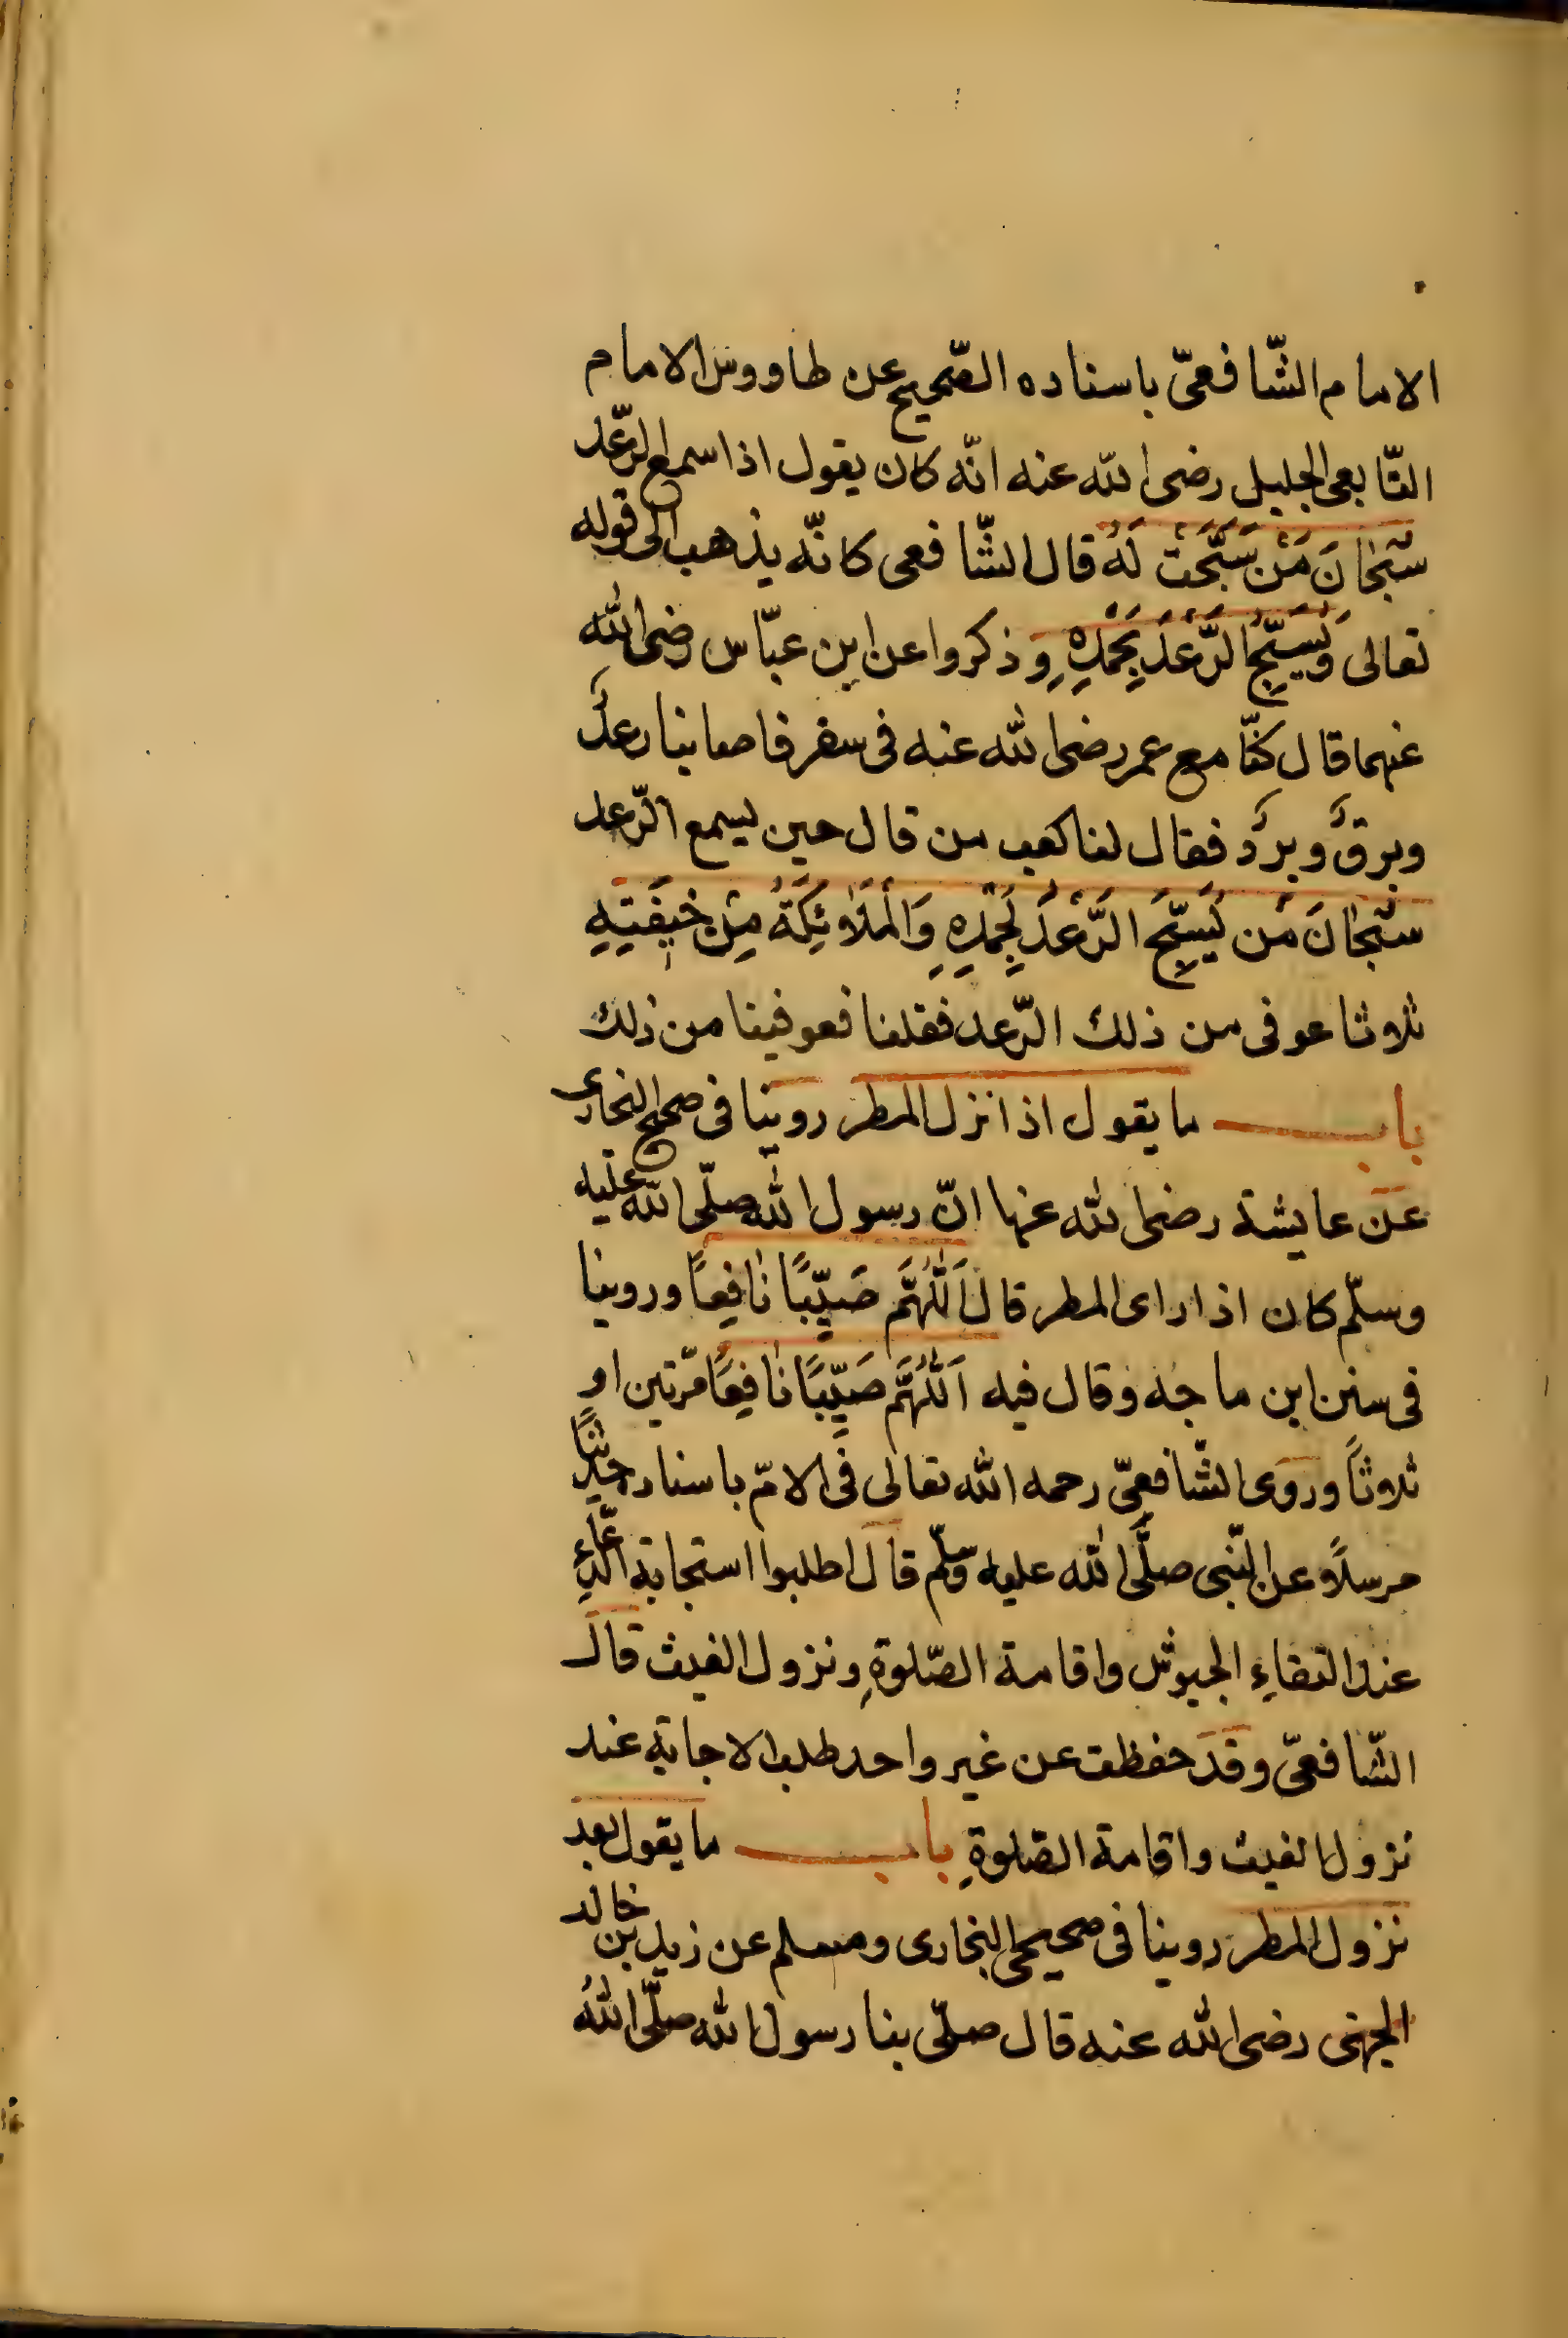 الامام الشّافعىّ باسناده الصّحيح عن طاووس الامام
التّابعى الجليل رضى الله عنه انّه كان يقول اذا سمع الرّعد
سُبْحَانَ مَنْ سَبَّحَتْ لَهُ قال الشّافعى كانّه يذهب الى قوله
تعالى وَيُسَبِّحُ الرَّعْدُ بِحَمْدِهِ وذكروا عن ابن عبّاس رضى الله
عنهما قال كنّا مع عمر رضى الله عنه فى سفر فاصابنا رعدٌ
وبرقٌ وبردٌ فقال لنا كعب من قال حين يسمع الرّعد
سُبْحَانَ مَن يُسَبِّحُ الرَّعْدُ بِحَمْدِهِ وَالْمَلَائِكَةُ مِنْ خِيفَتِهِ
ثلاثا عوفى من ذلك الرّعد فقلنا فعوفينا من ذلك
باب ما يقول اذا نزل المطر روينا فى صحيح البخارى
عن عايشة رضى الله عنها انّ رسول الله صلّى الله عليه
وسلّم كان اذا راى المطر قال اَللّٰهُمَّ صَيِّبًا نَافِعًا وروينا
فى سنن ابن ماجه وقال فيه اَللّٰهُمَّ صَيِّبًا نَافِعًا مرّتين او
ثلاثاً وروى الشّافعىّ رحمه الله تعالى فى الامّ باسناد حديثًا
مرسلاً عن النّبى صلَّى الله عليه وسلّم قال اطلبوا استجابة الدّعاء
عند التقاءِ الجيوش واقامة الصّلوةِ ونزول الغيث قال
الشّافعىّ وقد حفظت عن غير واحد طلب الاجابة عند
نزول الغيث واقامة الصّلوةِ باب ما يقول بعد
نزول المطر روينا فى صحيحى البخارى ومسلم عن زيد بن خالد
الجهنى رضى الله عنه قال صلّى بنا رسول الله صلّى اللهُ